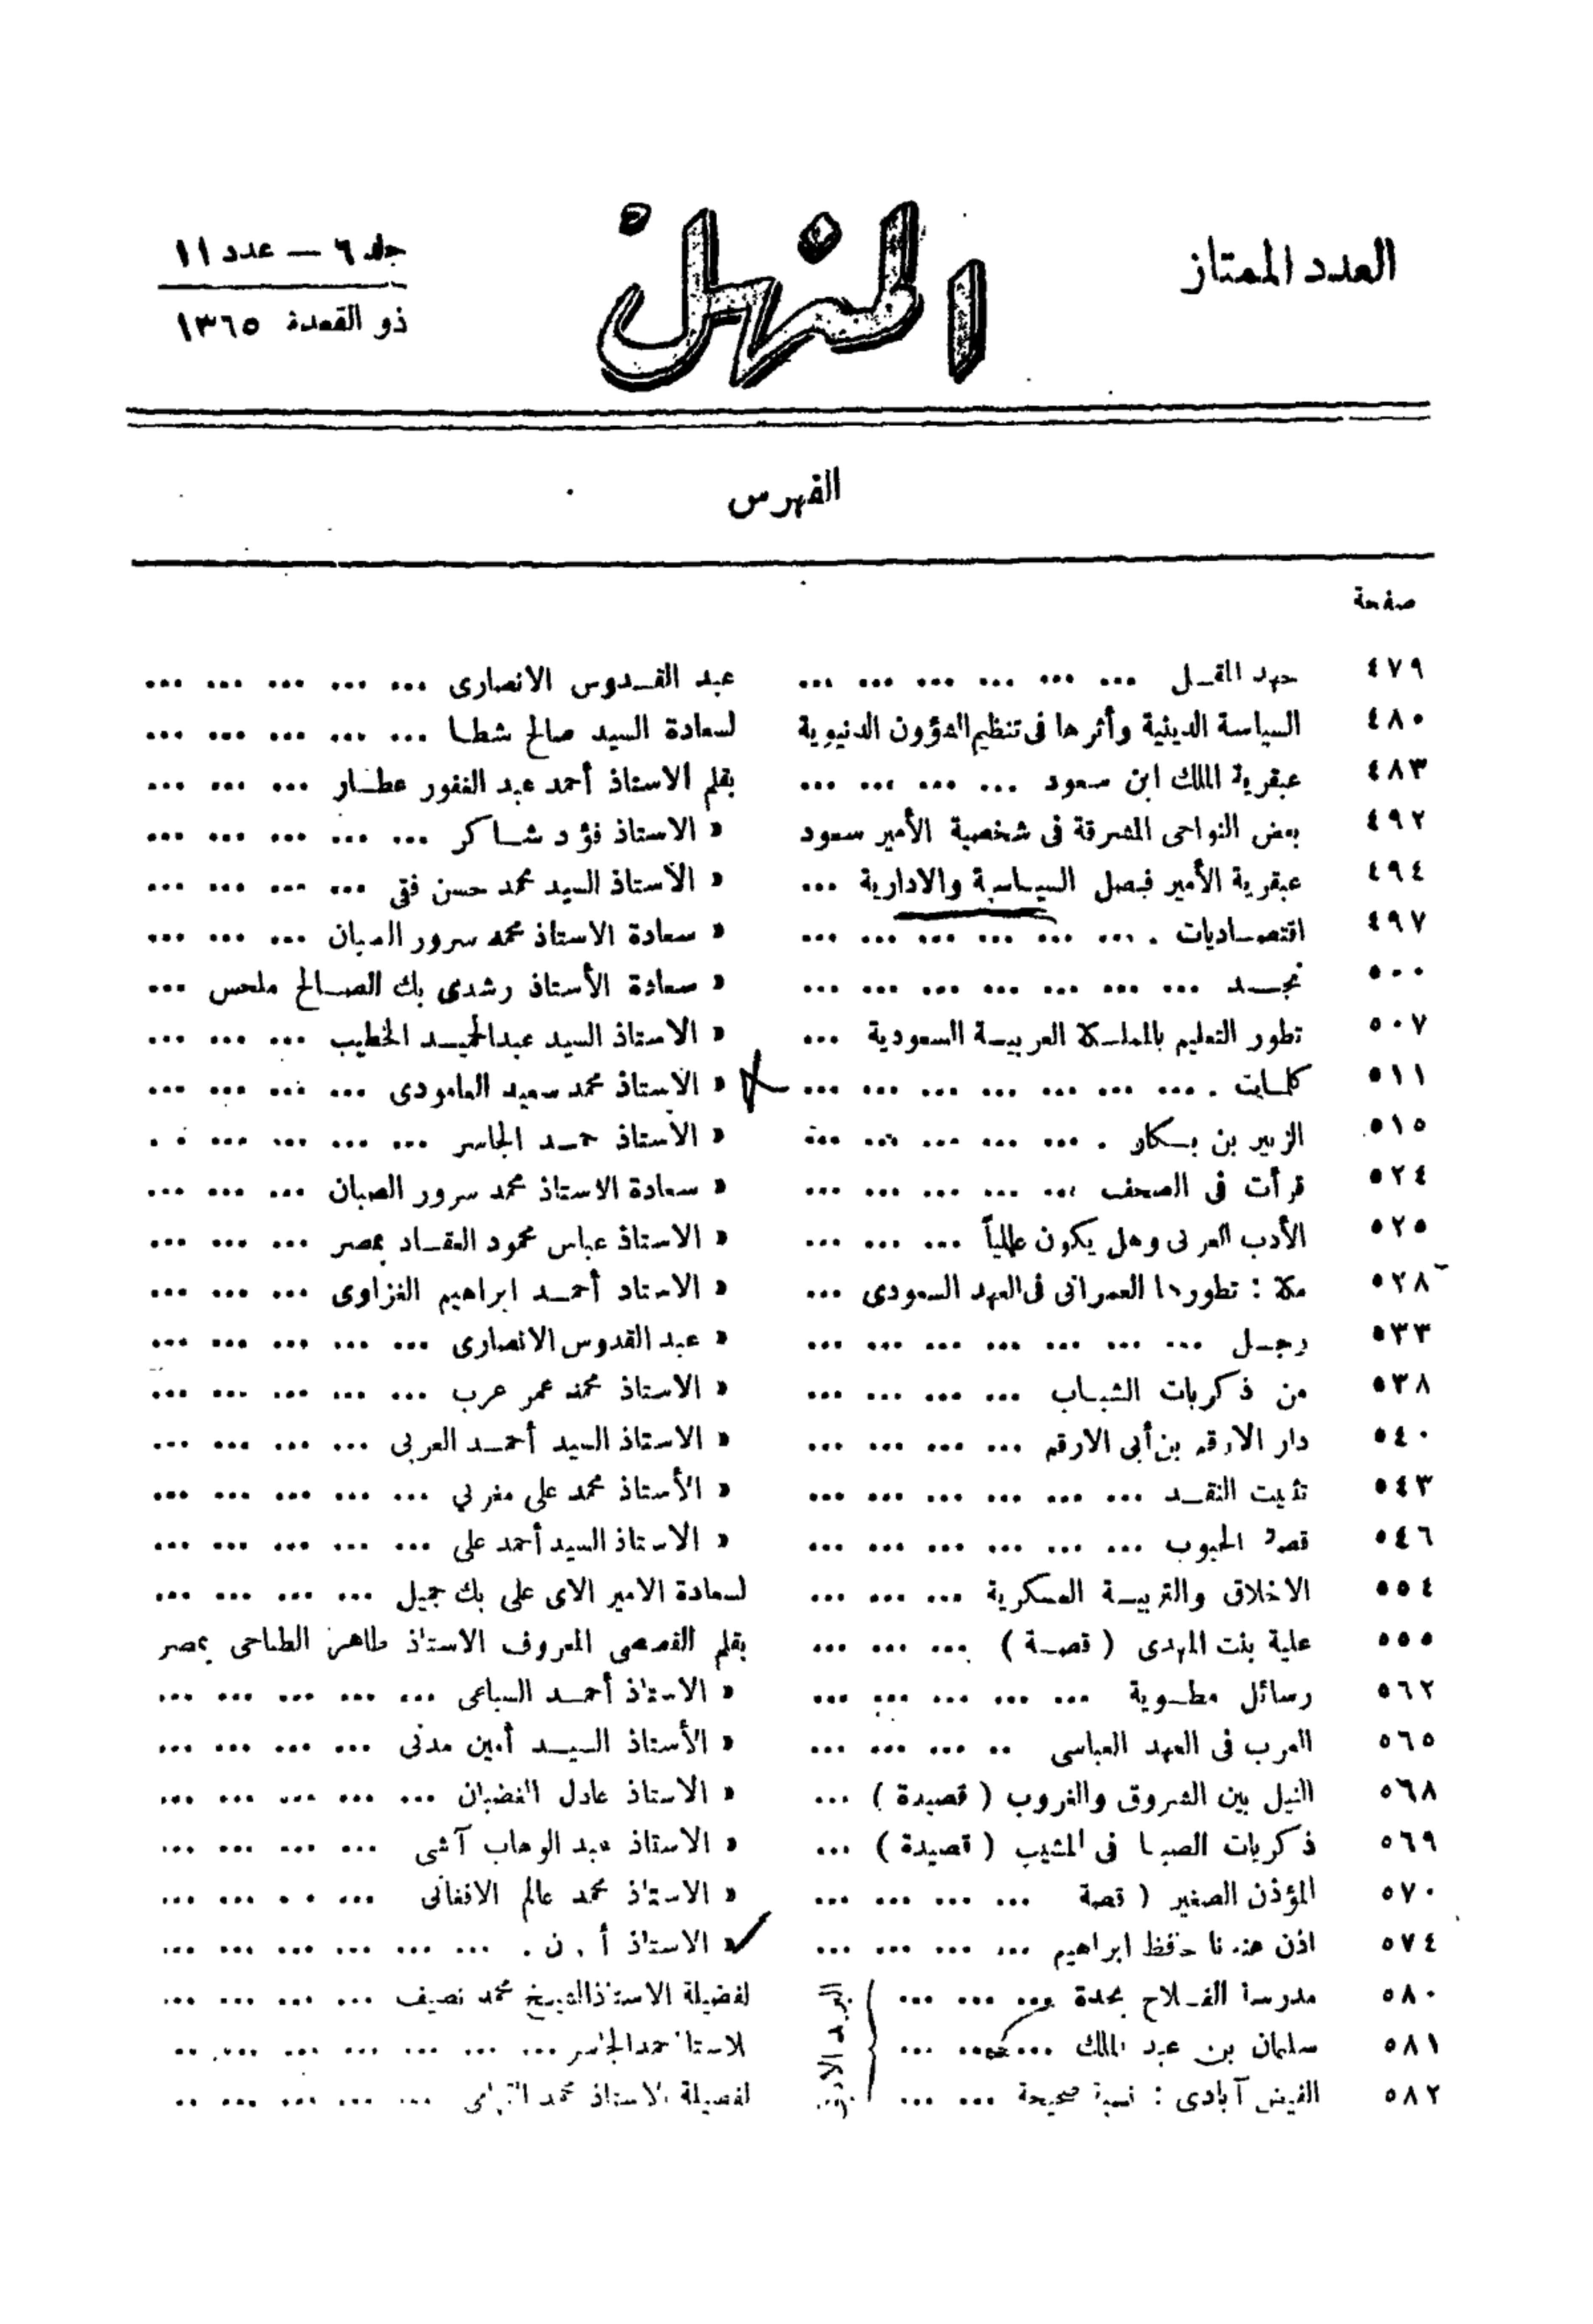 العدد الممتاز
المنهل
جلد ٦ — عدد ١١
ذو القعدة ١٣٦٥
الفهرس
صفحة
٤٧٩ جهد المقـل ... ... ... ... ... ... عبد القــدوس الانصارى ... ... ... ... ...
٤٨٠ السياسة الدينية وأثرها فى تنظيم الشؤون الدنيوية لسعادة السيد صالح شطـا ... ... ... ... ...
٤٨٣ عبقرية الملك ابن سعود ... ... ... ... بقلم الاستاذ أحمد عبد الغفور عطـار ... ... ...
٤٩٢ بعض النواحى المشرقة فى شخصية الأمير سعود » الاستاذ فؤد شـاكر ... ... ... ... ...
٤٩٤ عبقرية الأمير فيصل السياسية والادارية ... » الأستاذ السيد محمد حسن فقى ... ... ... ...
٤٩٧ اقتصـاديات . ... ... ... ... ... ... » سعادة الاستاذ محمد سرور الصبان ... ... ...
٥٠٠ نجــد ... ... ... ... ... ... ... » سعادة الأستاذ رشدى بك الصـالح ملحس ...
٥٠٧ تطور التعليم بالمملـكة العربيـة السعودية ... » الاستاذ السيد عبدالحميـد الخطيب ... ... ...
٥١١ كلمـات . ... ... ... ... ... ... ... » الأستاذ محمد سعيد العامودى ... ... ... ...
٥١٥ الزبير بن بـكار . ... ... ... ... ... » الأستاذ حمـد الجاسر ... ... ... ... . .
٥٢٤ قرأت فى الصحف ... ... ... ... ... » سعادة الاستاذ محمد سرور الصبان ... ... ...
٥٢٥ الأدب العربى وهل يكون عالمياً ... ... ... » الاستاذ عباس محمود العقـاد بمصر ... ... ...
٥٢٨ مكة : تطورها العمرانى فى العهد السعودى ... » الاستاد أحمـد ابراهيم الغزاوى ... ... ...
٥٣٣ رجـل ... ... ... ... ... ... ... » عبد القدوس الانصارى ... ... ... ... ...
٥٣٨ من ذكريات الشبـاب ... ... ... ... » الاستاذ محمد عمر عرب ... ... ... ... ...
٥٤٠ دار الارقم بن أبى الارقم ... ... ... ... » الاستاذ السيد أحمـد العربى ... ... ... ...
٥٤٣ تثبيت النقـد ... ... ... ... ... ... » الأستاذ محمد على مغربي ... ... ... ... ...
٥٤٦ قصة الحبوب ... ... ... ... ... ... » الاستاذ السيد أحمد على ... ... ... ... ...
٥٥٤ الاخلاق والتربيـة العسكرية ... ... ... لسعادة الامير الاى على بك جميل ... ... ... ...
٥٥٥ علية بنت المهدى ( قصـة ) ... ... ... بقلم القصصى المعروف الاستاذ طاهر الطناحى بمصر
٥٦٢ رسائل مطـوية ... ... ... ... ... » الاستاذ أحمـد السباعى ... ... ... ... ...
٥٦٥ العرب فى العهد العباسى .. ... ... ... » الأستاذ السيـد أمين مدنى ... ... ... ...
٥٦٨ النيل بين الشروق والغروب ( قصيدة ) ... » الاستاذ عادل الغضبان ... ... ... ... ...
٥٦٩ ذكريات الصبـا فى المشيب ( قصيدة ) ... » الاستاذ عبد الوهاب آشى ... ... ... ...
٥٧٠ المؤذن الصغير ( قصة ... ... ... ... » الاستاذ محمد عالم الافغانى ... . . ... ...
٥٧٤ اذن هذبنا حافظ ابراهيم ... ... ... ... » الاستاذ أ . ن . ... ... ... ... ... ...
البريد الادبى
٥٨٠ مدرسة الفـلاح بجدة ... ... ... لفضيلة الاستاذ الشيخ محمد نصيف ... ... ... ...
٥٨١ سليمان بن عبد الملك ... ... ... للاستاذ حمد الجاسر ... ... ... ... ... ... ..
٥٨٢ الفيض آبادى : نسبة صحيحة ... ... لفضيلة الاستاذ محمد ... ... ... ... ..